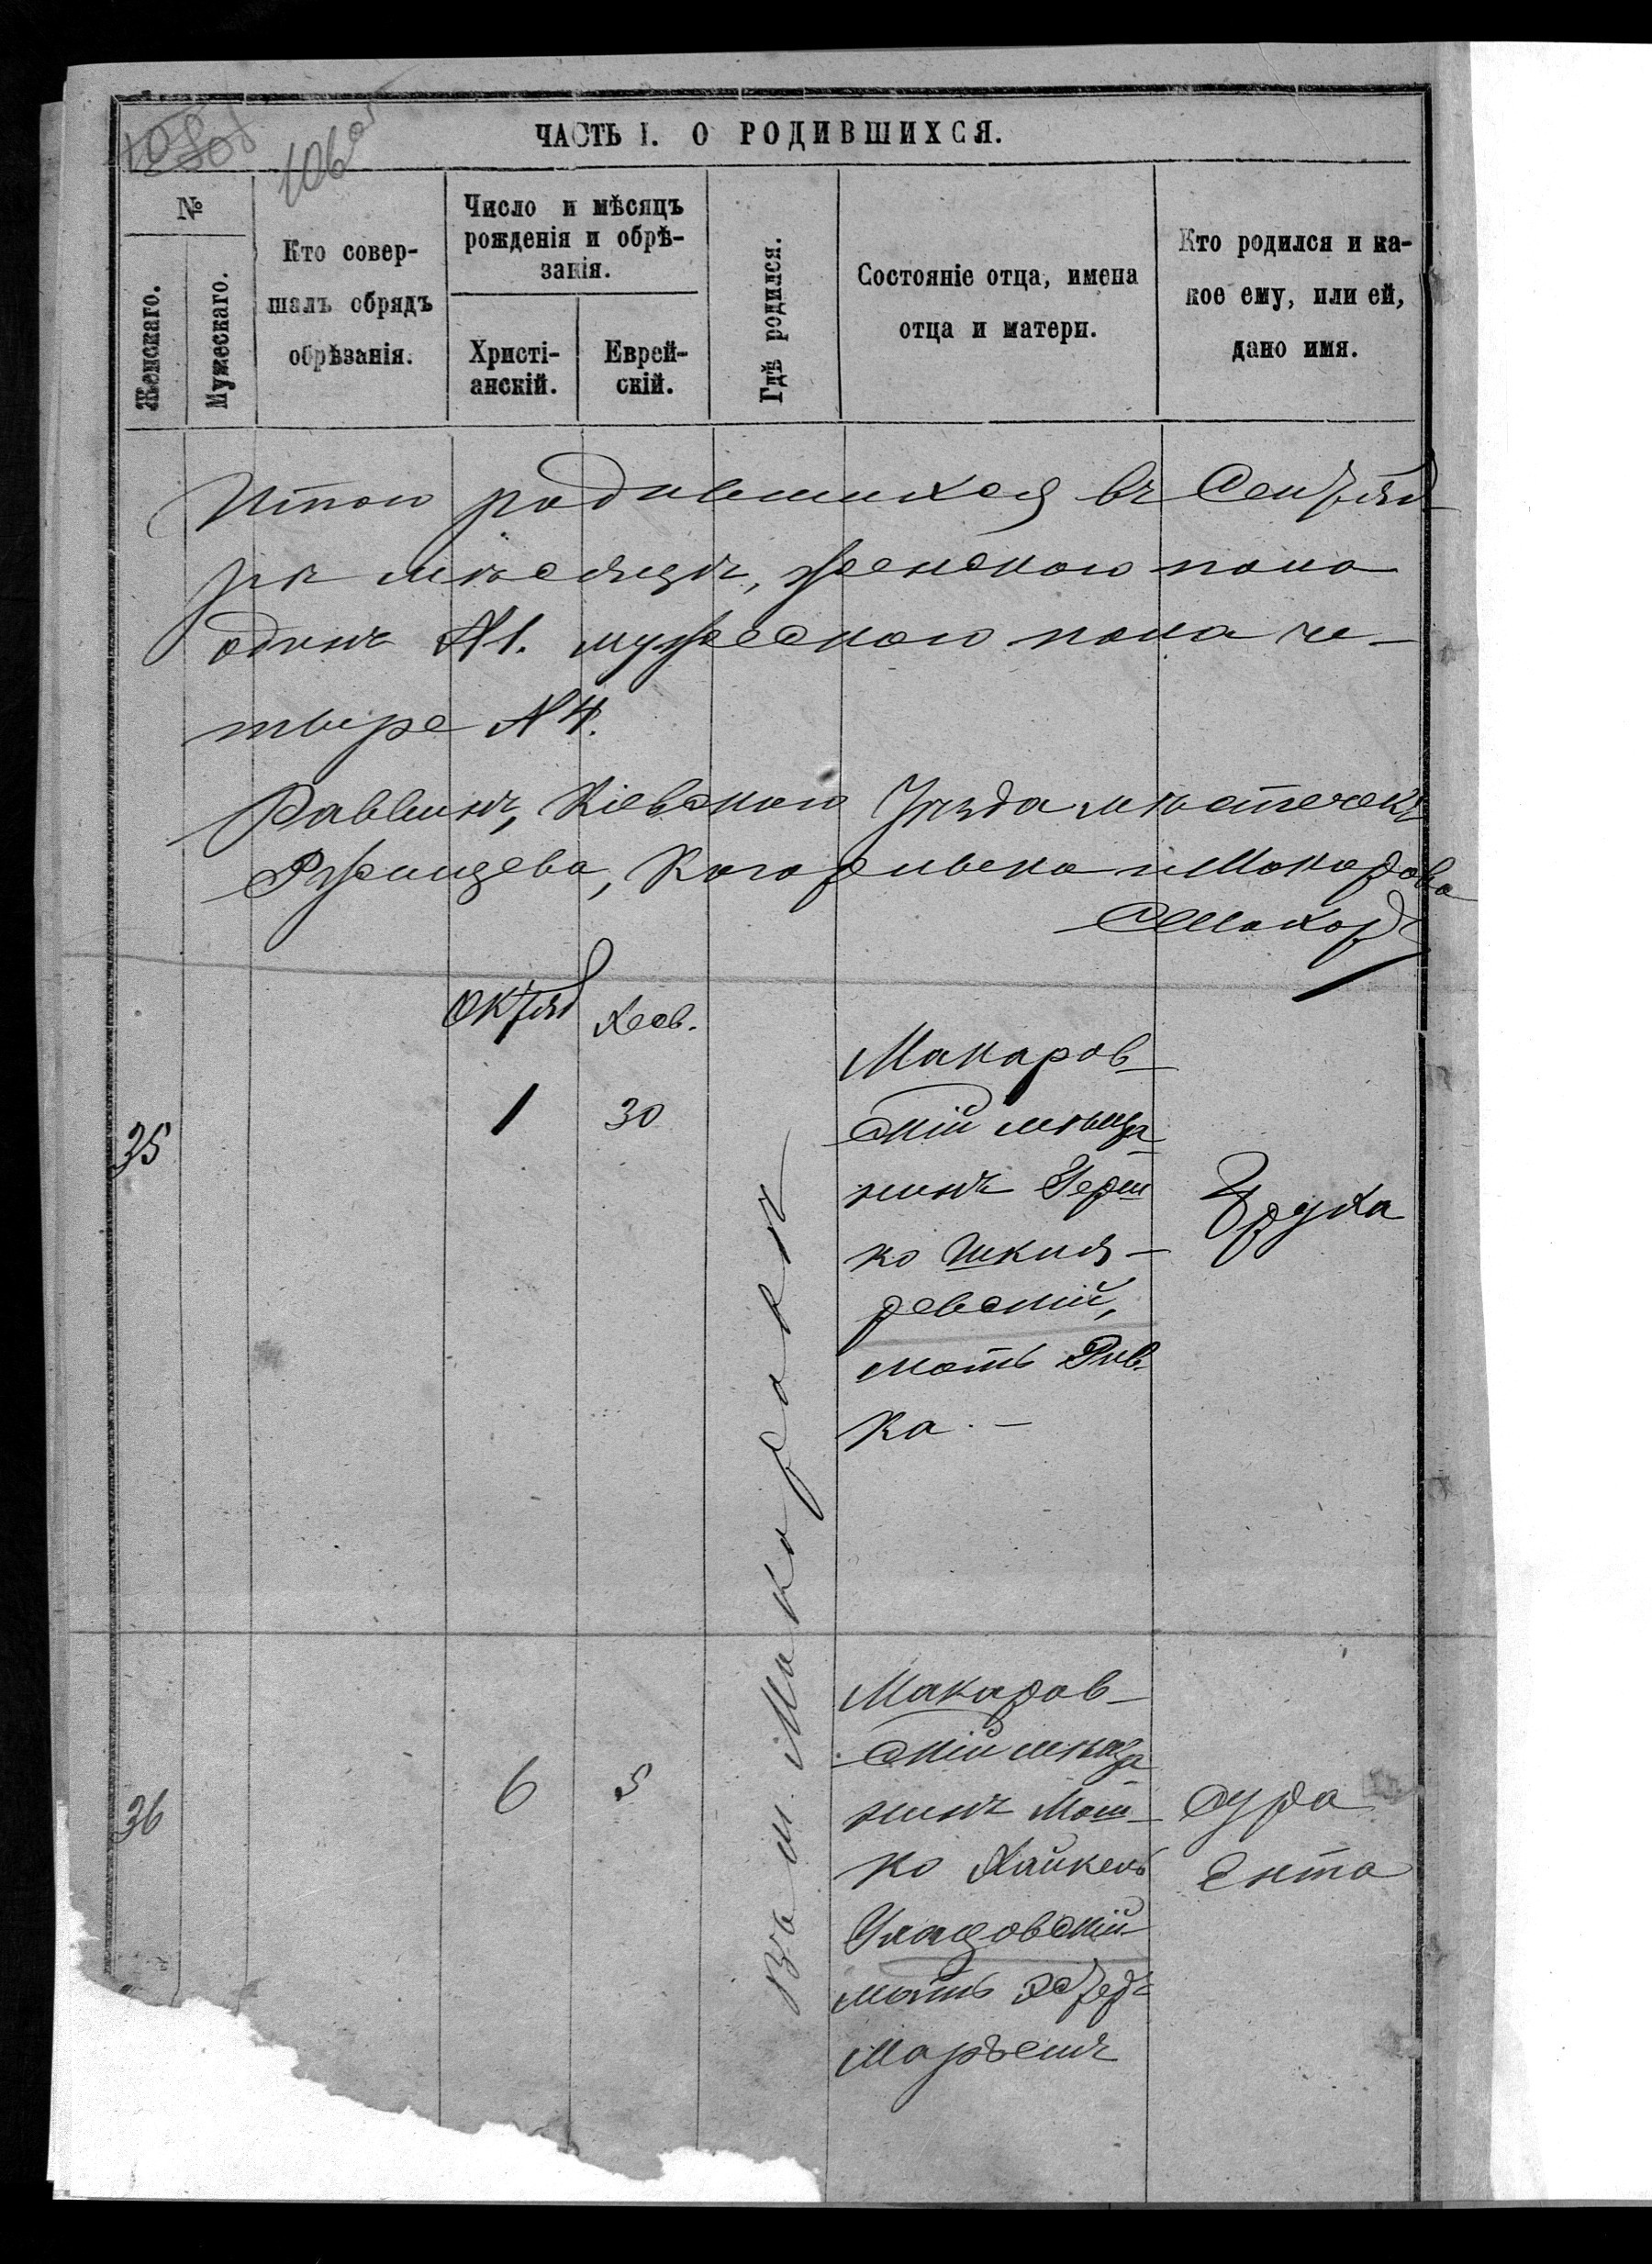 106об
ЧАСТЬ I. О РОДИВШИХСЯ.
№
Женскаго.
Мужескаго.
Кто совер-
шалъ обрядъ
обрѣзанія.
Число и мѣсяцъ
рожденія и обрѣ-
занія.
Христі-
анскій.
Еврей-
скій.
Гдѣ родился.
Состояніе отца, имена
отца и матери.
Кто родился и ка-
кое ему, или ей,
дано имя.
Итого родившихся въ Сентяб
рѣ мѣсяцѣ, женскаго пола
одинъ №1. мужескаго пола че-
тыре №4.
Раввинъ, Кіевскаго Уѣзда мѣстечекъ
Ржищева, Кагарлыка и Макарова
Октяб
Хесв.
35
1
30
Въ м. Макаровѣ
Макаров-
скій мѣща-
нинъ Герш
ко Шкля-
ревскій,
мать Рив-
ка. -
Фрума
36
6
5
Макаров-
скій мѣща
нинъ Мош-
ко Хайкель
мать Эстеръ
Марьемъ
Сура
Ента